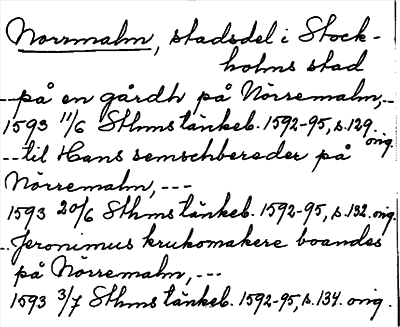 Norrmalm, stadsdel i Stock-
holms stad
--på en gårdh på Nörremalm,--
1593 11/6 Sthms tänkeb. 1592-95, s. 129.
orig.
--til Hans semschbereder på
Nörremalm,---
1593 20/6 Sthms tänkeb. 1592-95, s. 132. orig.
--Jeronimus krukomakere boandes
på Nörremalm,---
1593 3/7 Sthms tänkeb. 1592-95, s. 134. orig.